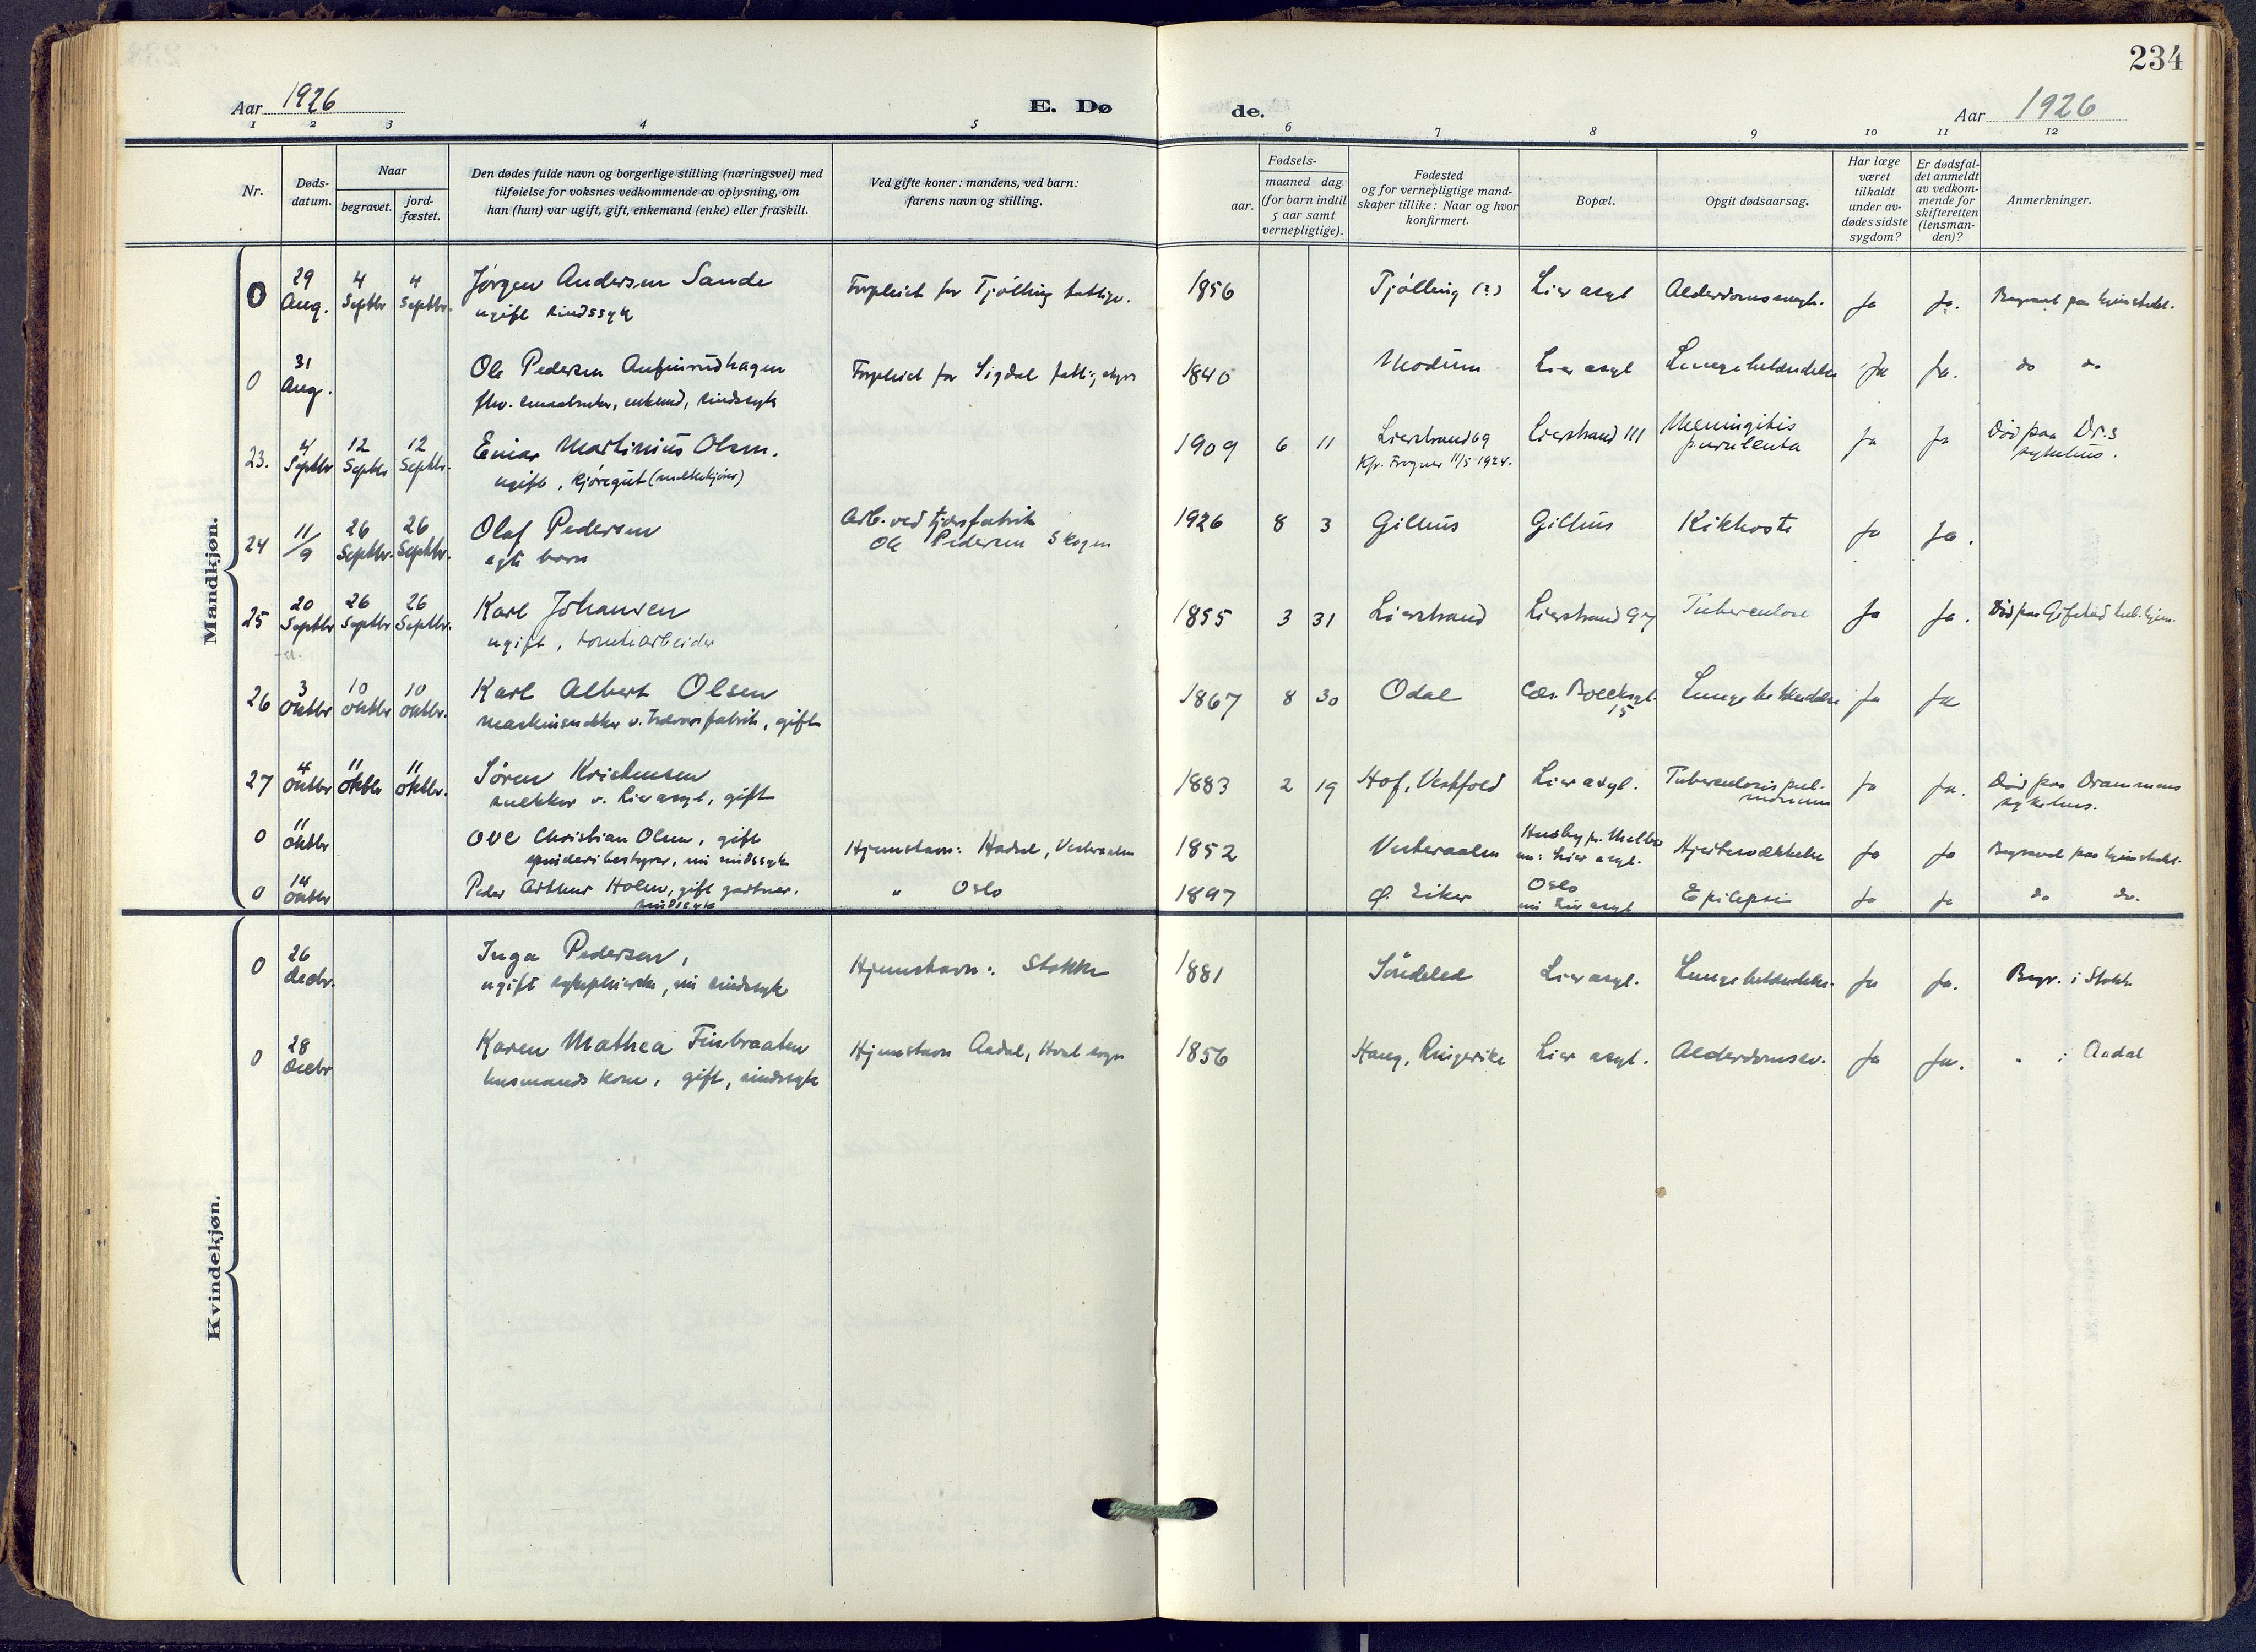 234
Aar 1926
E. Døde.
Aar 1926
1 2 3 4 5 6 7 8 9 10 11 12
Nr.
Døds-
datum.
Naar
begravet.
jord-
fæstet.
Den dødes fulde navn og borgerlige stilling (næringsvei) med
tilføielse for voksnes vedkommende av oplysning, om
han (hun) var ugift, gift, enkemand (enke) eller fraskilt.
Ved gifte koner: mandens, ved barn:
farens navn og stilling.
Fødsels-
aar.
maaned dag
(for barn indtil
5 aar samt
vernepligtige).
Fødested
og for vernepligtige mand-
skaper tillike: Naar og hvor
konfirmert.
Bopæl.
Opgit dødsaarsag.
Har læge
været
tilkaldt
under av-
dødes sidste
sygdom?
Er dødsfal-
det anmeldt
av vedkom-
mende for
skifteretten
(lensman-
den)?
Anmerkninger.
Mandkjøn.
0 29 Aug. 4 Septbr 4 Septbr. Jørgen Andersen Sande
ugift sindssyk
Forpleiet for Tjølling 1856 Tjølling (?) Lier asyl ja ja. Begravet paa hjemstedet.
0 31 Aug. Ole Pedersen
enkemd, sindssyk
Forpleiet for Sigdal 1840 Modum Lier asyl Lungebetændelse ja ja. do do
23. 4 Septbr 12 Septbr 12 Septbr. Einar Martinius Olsen.
ugift, kjøregut (melkekjører)
1909 6 11 Lierstrand 69
Kfr. Frogner 11/5 1924.
Lierstrand 111 Meningitis
purulenta
ja ja Død paa Dr.s
sykehus.
24 11/9 26 Septbr. 26 Septbr. Olaf Pedersen
egte barn
Arb. ved tjærefabrik
Ole Pedersen Skogen
1926 8 3 Gilhus Gilhus Kikhoste ja ja.
25 20 Septbr 26 Septbr 26 Septbr. Karl Johansen
ugift, tomtearbeider
1855 3 31 Lierstrand Lierstrand 97 Tuberculose ja ja. Død paa
26 3 Oktbr 10 Oktbr 10 Oktbr. Karl Albert Olsen
gift
1867 8 30 Odal
15
Lungebetændelse ja ja
27 4 Oktbr 11 Oktbr 11 Oktbr. Søren Kristensen
snekker v. Lier asyl, gift
1883 2 19 Hof, Vestfold Lier asyl. Tuberculosis pul-
monum
ja ja. Død paa Drammens
sykehus.
0 11 Oktbr Ove Christian Olsen, gift
spinderibestyrer, nu sindssyk
Hjemstavn: Hadsel, Vesteraalen 1852 Vesteraalen
nu: Lier asyl.
Hjertesvækkelse ja ja Begravet paa hjemstedet.
0 14 Oktbr Peder Arthur Holm, gift gartner.
sindssyk
" Oslo 1897 Ø. Eiker Oslo
nu Lier asyl
Epilepsi ja ja do do.
Kvindekjøn.
0 26 Decbr. Inga Pedersen,
ugift sykepleierske, nu sindssyk
Hjemstavn: Stokke 1881 Søndeled Lier asyl. Lungebetændelse. ja ja. Begr. i Stokke
0 28 Decbr Karen Mathea Finbraaten
husmands kone, gift, sindssyk
Hjemstavn Aadal, Hval sogn 1856 Haug, Ringerike Lier asyl. Alderdomssv. ja ja. " i Aadal